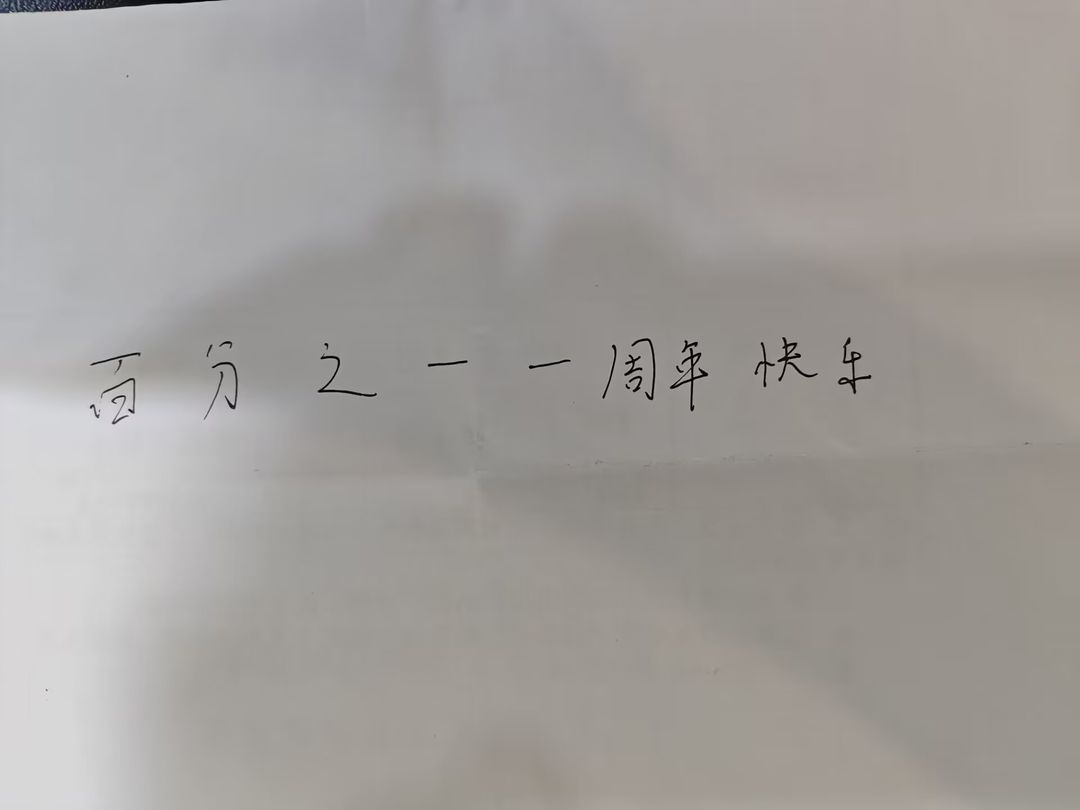 百分之一一周年快乐